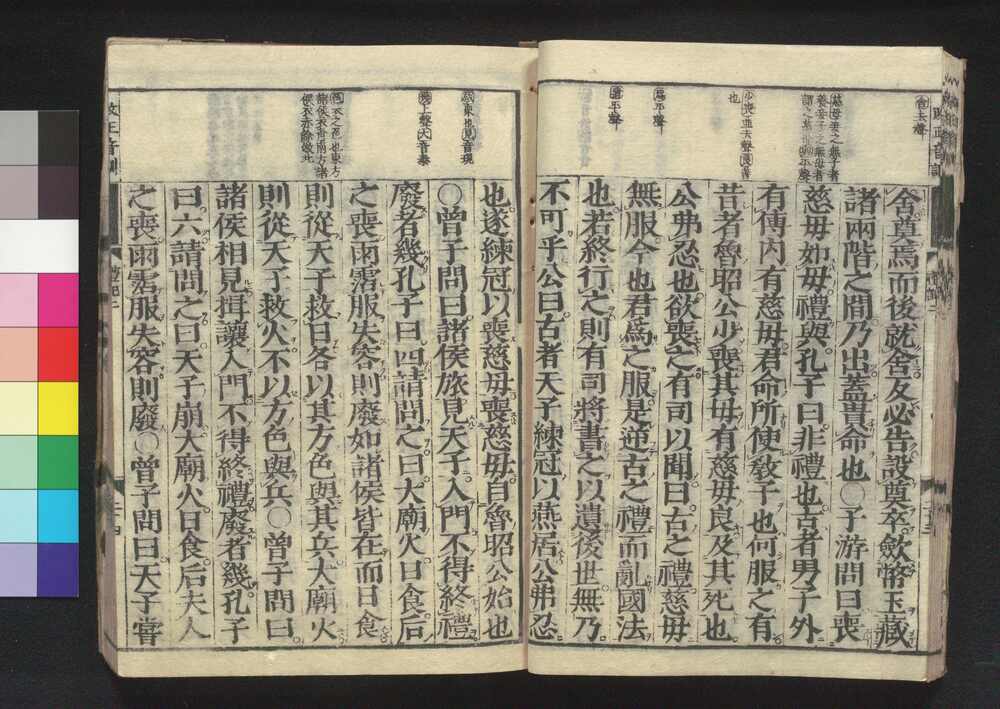 舍奠焉而後就舍反必告設奠卒斂幣玉藏
諸兩階之間乃出蓋貴命也○子游問曰喪
慈母如母禮與孔子曰非禮也古者男子外
有傅內有慈母君命所使敎子也何服之有
昔者魯昭公少喪其母有慈母良及其死也
公弗忍也欲喪之有司以聞曰古之禮慈母
無服今也君爲之服是逆古之禮而亂國法
也若終行之則有司將書之以遺後世無乃
不可乎公曰古者天子練冠以燕居公弗忍
也遂練冠以喪慈母喪慈母自魯昭公始也
○曾子問曰諸侯旅見天子入門不得終禮
廢者幾孔子曰四請問之曰大廟火日食后
之喪雨霑服失容則廢如諸侯皆在而日食
則從天子救日各以其方色與其兵大廟火
則從天子救火不以方色與兵○曾子問曰
諸侯相見揖讓入門不得終禮廢者幾孔子
曰六請問之曰天子崩大廟火日食后夫人
之喪雨霑服失容則廢○曾子問曰天子嘗
舍去聲
爲平聲
遺平聲
幾上聲大音泰